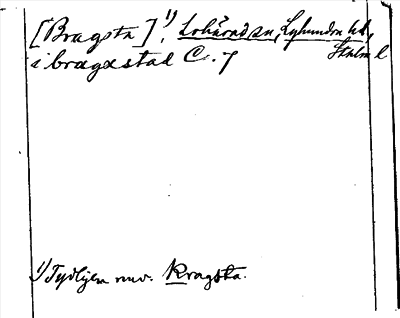 [Bragsta] 1), Lohärad sn, Lyhundra hd,
Sthlm l
i bragxstad C. 7
1) Tydligen nuv. Kragsta.